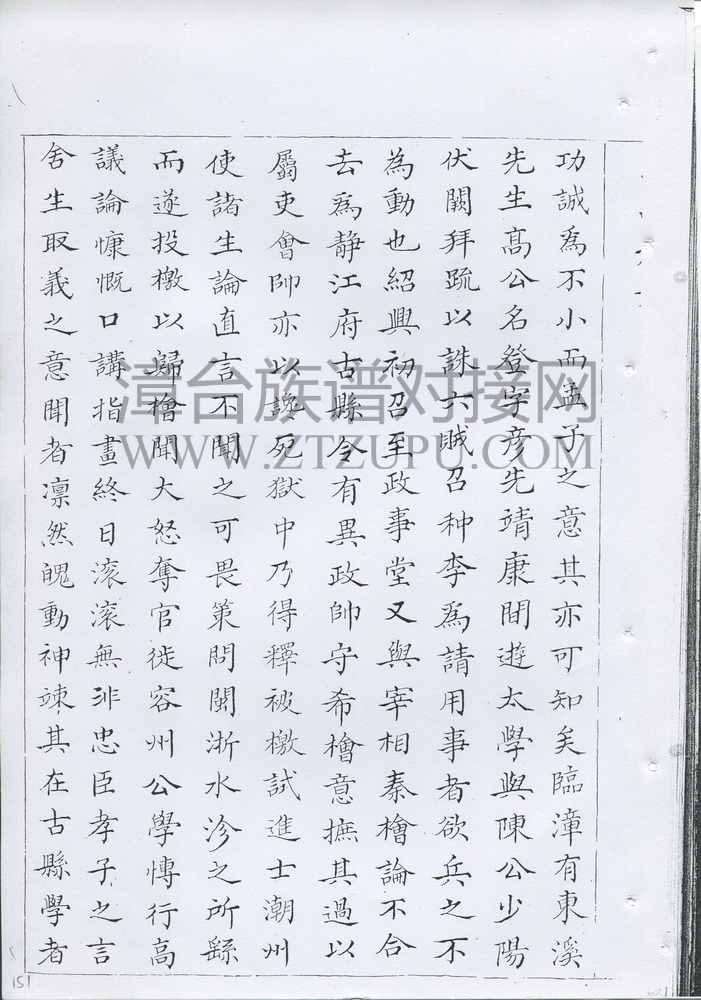 功誠為不小而孟子之意其亦可知矣臨漳有東溪
先生高公名登字彦先靖康間遊太學與陳公少陽
伏闕拜疏以誅六賊召种李為請用事者欲兵之不
為動也紹興初召至政事堂又與宰相秦檜論不合
去為静江府古縣令有異政帥守希檜意摭其過以
屬吏會帥亦以讒死獄中乃得釋被檄試進士潮州
使諸生論直言不聞之可畏策問閩浙水沴之所繇
而遂投檄以歸檜聞大怒奪官徙容州公學博行高
議論慷慨口講指畫終日滚滚無非忠臣孝子之言
舍生取義之意聞者凛然魄動神竦其在古縣學者
漳台族谱对接网
WWW.ZTZUPU.COM
151